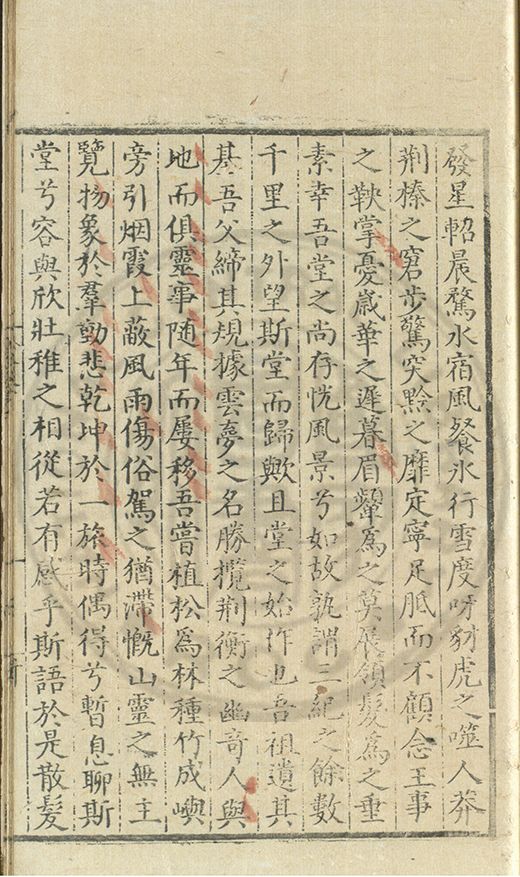 發星軺晨驁水宿風餐氷行雪度呀豺虎之噬人莽
荆榛之窘步驚突黔之靡定寧足胝而不顧念王事
之鞅掌憂嵗華之遲暮眉顰為之莫展領髮為之垂
素幸吾堂之尚存恍風景兮如故孰謂三紀之餘數
千里之外望斯堂而歸歟且堂之始作也吾祖遺其
基吾父締其規據雲夢之名勝攬荆衡之幽奇人與
地而俱靈事随年而屢移吾嘗植松為林種竹成嶼
旁引烟霞上蔽風雨傷俗駕之猶滯慨山靈之無主
覽物象於羣動悲乾坤於一旅時偶得兮暫息聊斯
堂兮容與欣壯稚之相從若有感乎斯語於是散髮